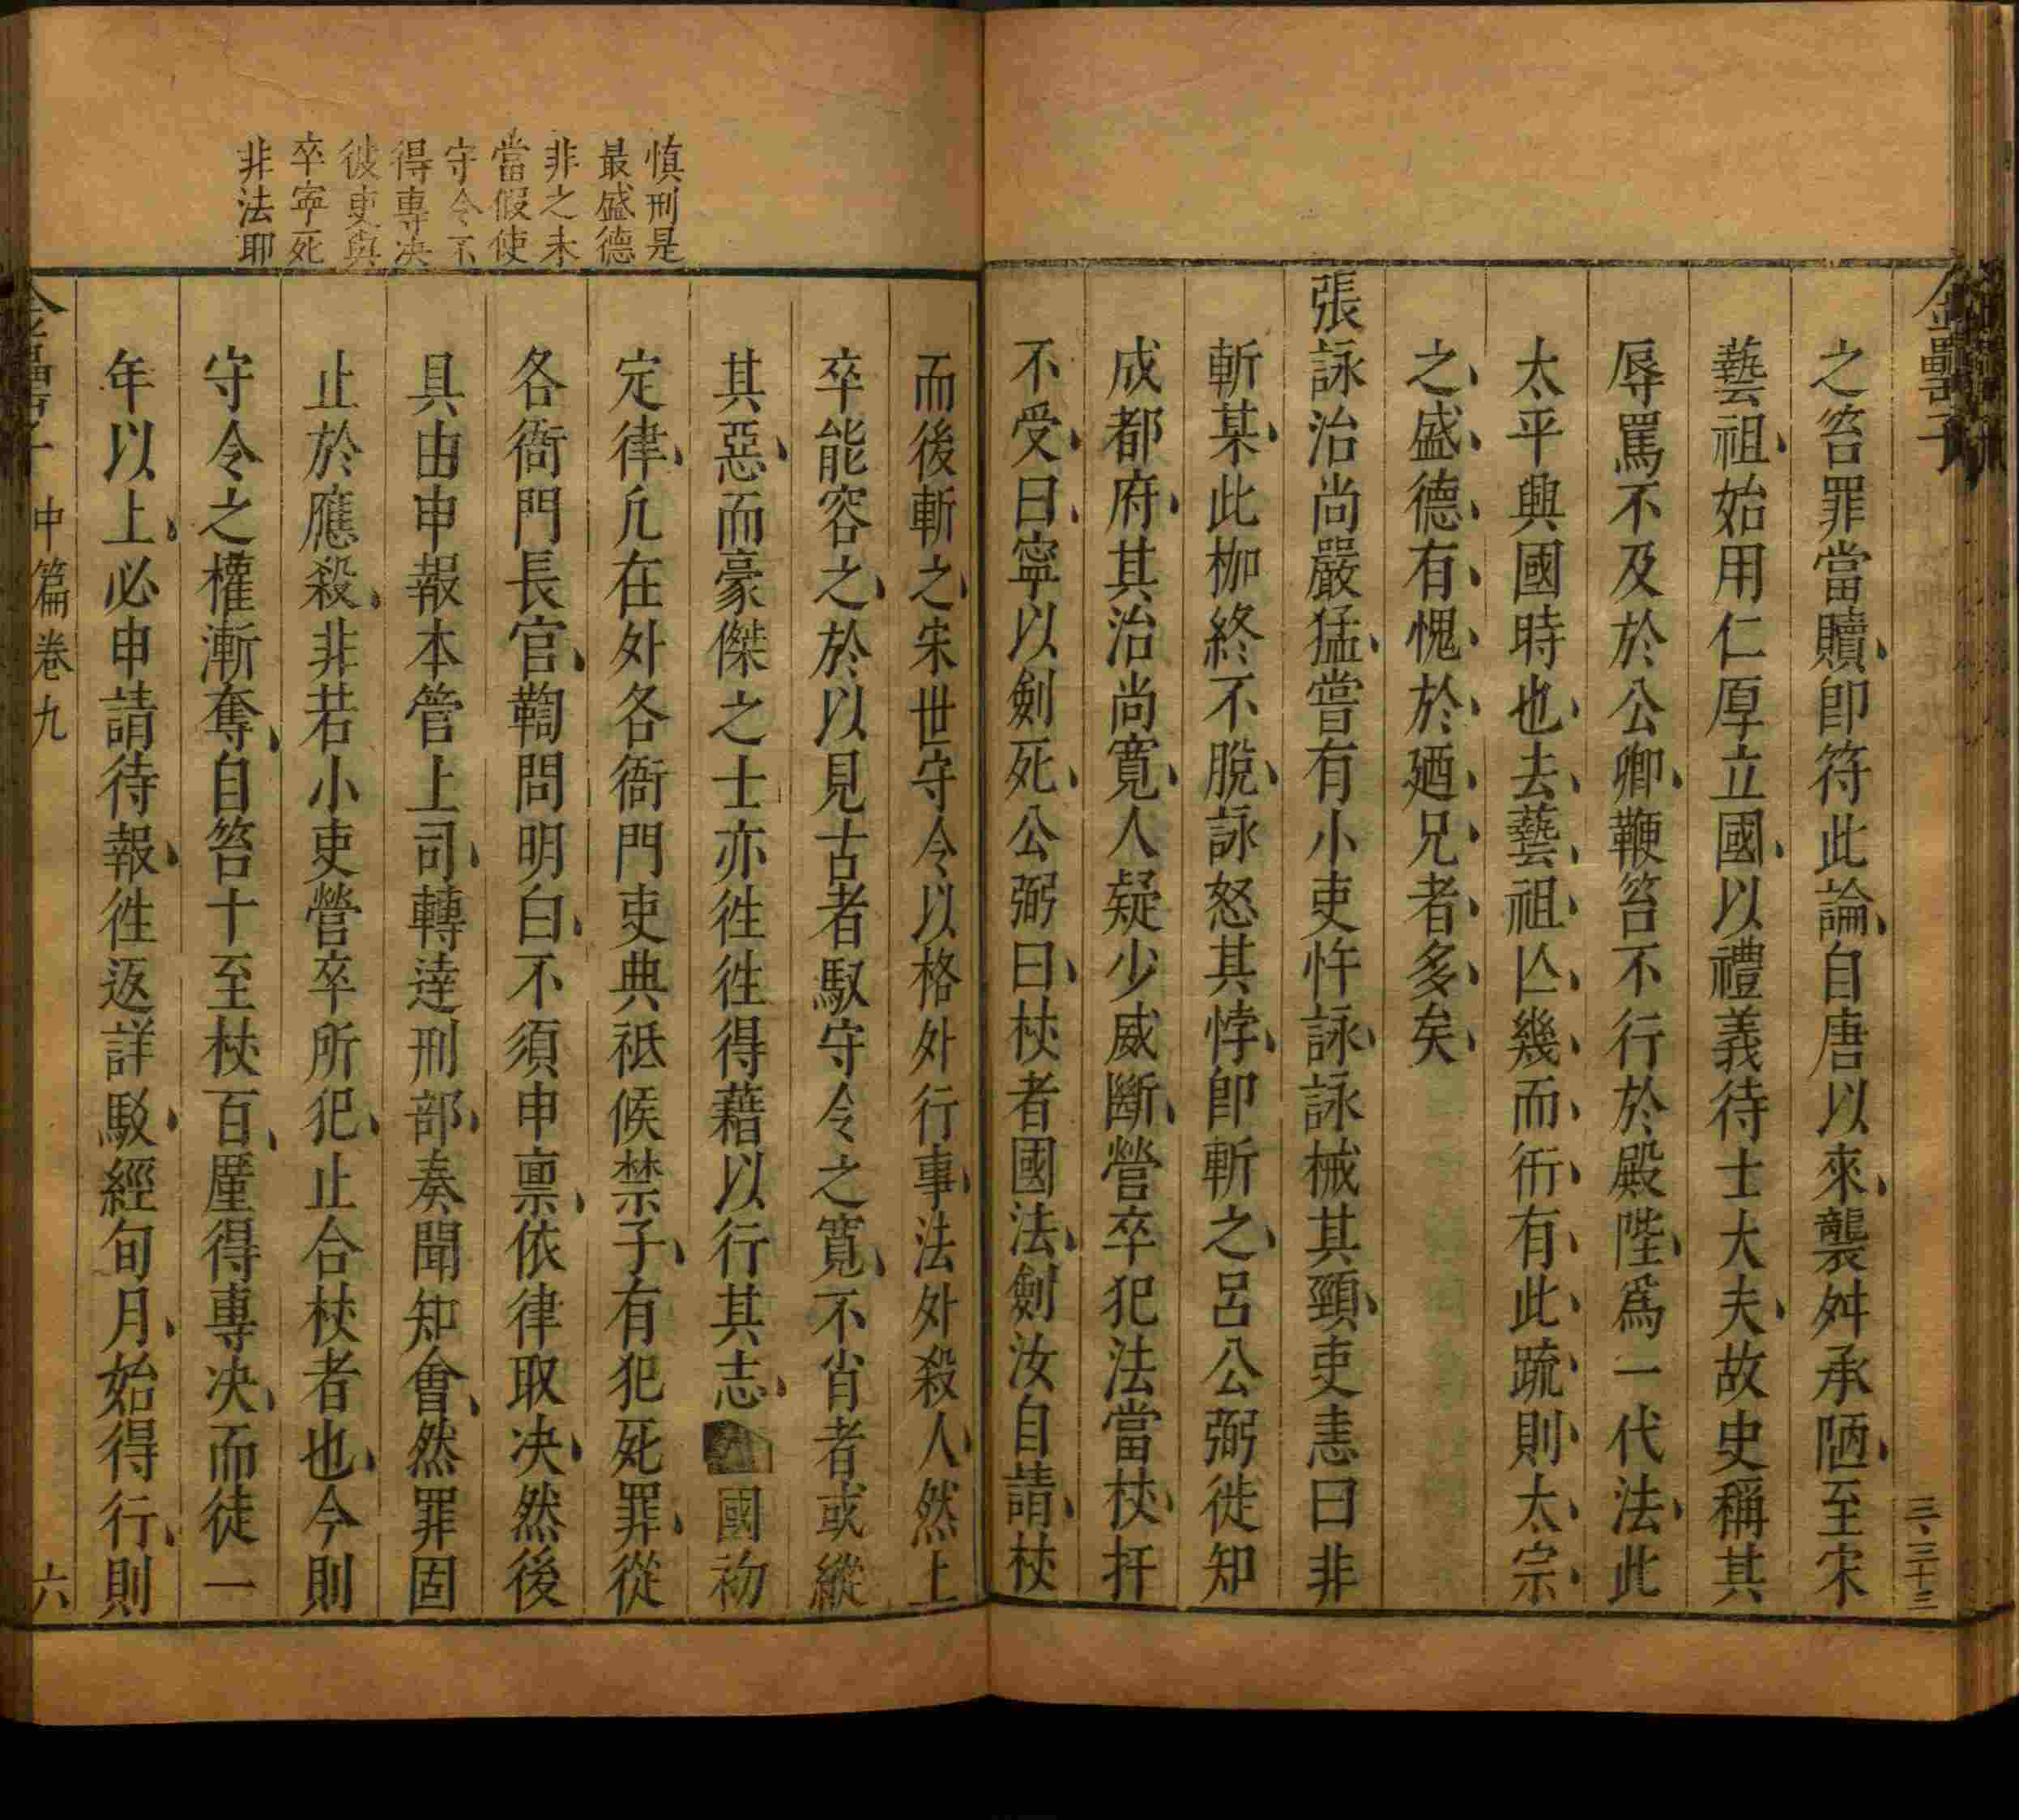 金罍子
三、三十三
之笞罪當贖卽符此論自唐以來襲舛承陋至宋
藝祖始用仁厚立國以禮義待士大夫故史稱其
辱罵不及於公卿鞭笞不行於殿陛爲一代法此
太平興國時也去藝祖亾幾而衎有此䟽則太宗
之盛德有愧於廼兄者多矣
張詠治尚嚴猛嘗有小吏忤詠詠械其頸吏恚曰非
斬某此枷終不脫詠怒其悖卽斬之呂公弼徙知
成都府其治尚寬人疑少威斷營卒犯法當杖扞
不受曰寧以劍死公弼曰杖者國法劍汝自請杖
而後斬之宋世守令以格外行事法外殺人然上
卒能容之於以見古者馭守令之寬不肖者或縱
其惡而豪傑之士亦徃徃得藉以行其志國初
定律凢在外各衙門吏典祗候禁子有犯死罪從
各衙門長官鞫問明白不須申稟依律取决然後
具由申報本管上司轉逹刑部奏聞知會然罪固
止於應殺非若小吏營卒所犯止合杖者也今則
守令之權漸奪自笞十至杖百厪得專决而徒一
年以上必申請待報徃返詳駁經旬月始得行則
慎刑是
最盛德
非之未
當假使
守令不
得專决
彼吏與
卒寧死
非法耶
中篇卷九
六